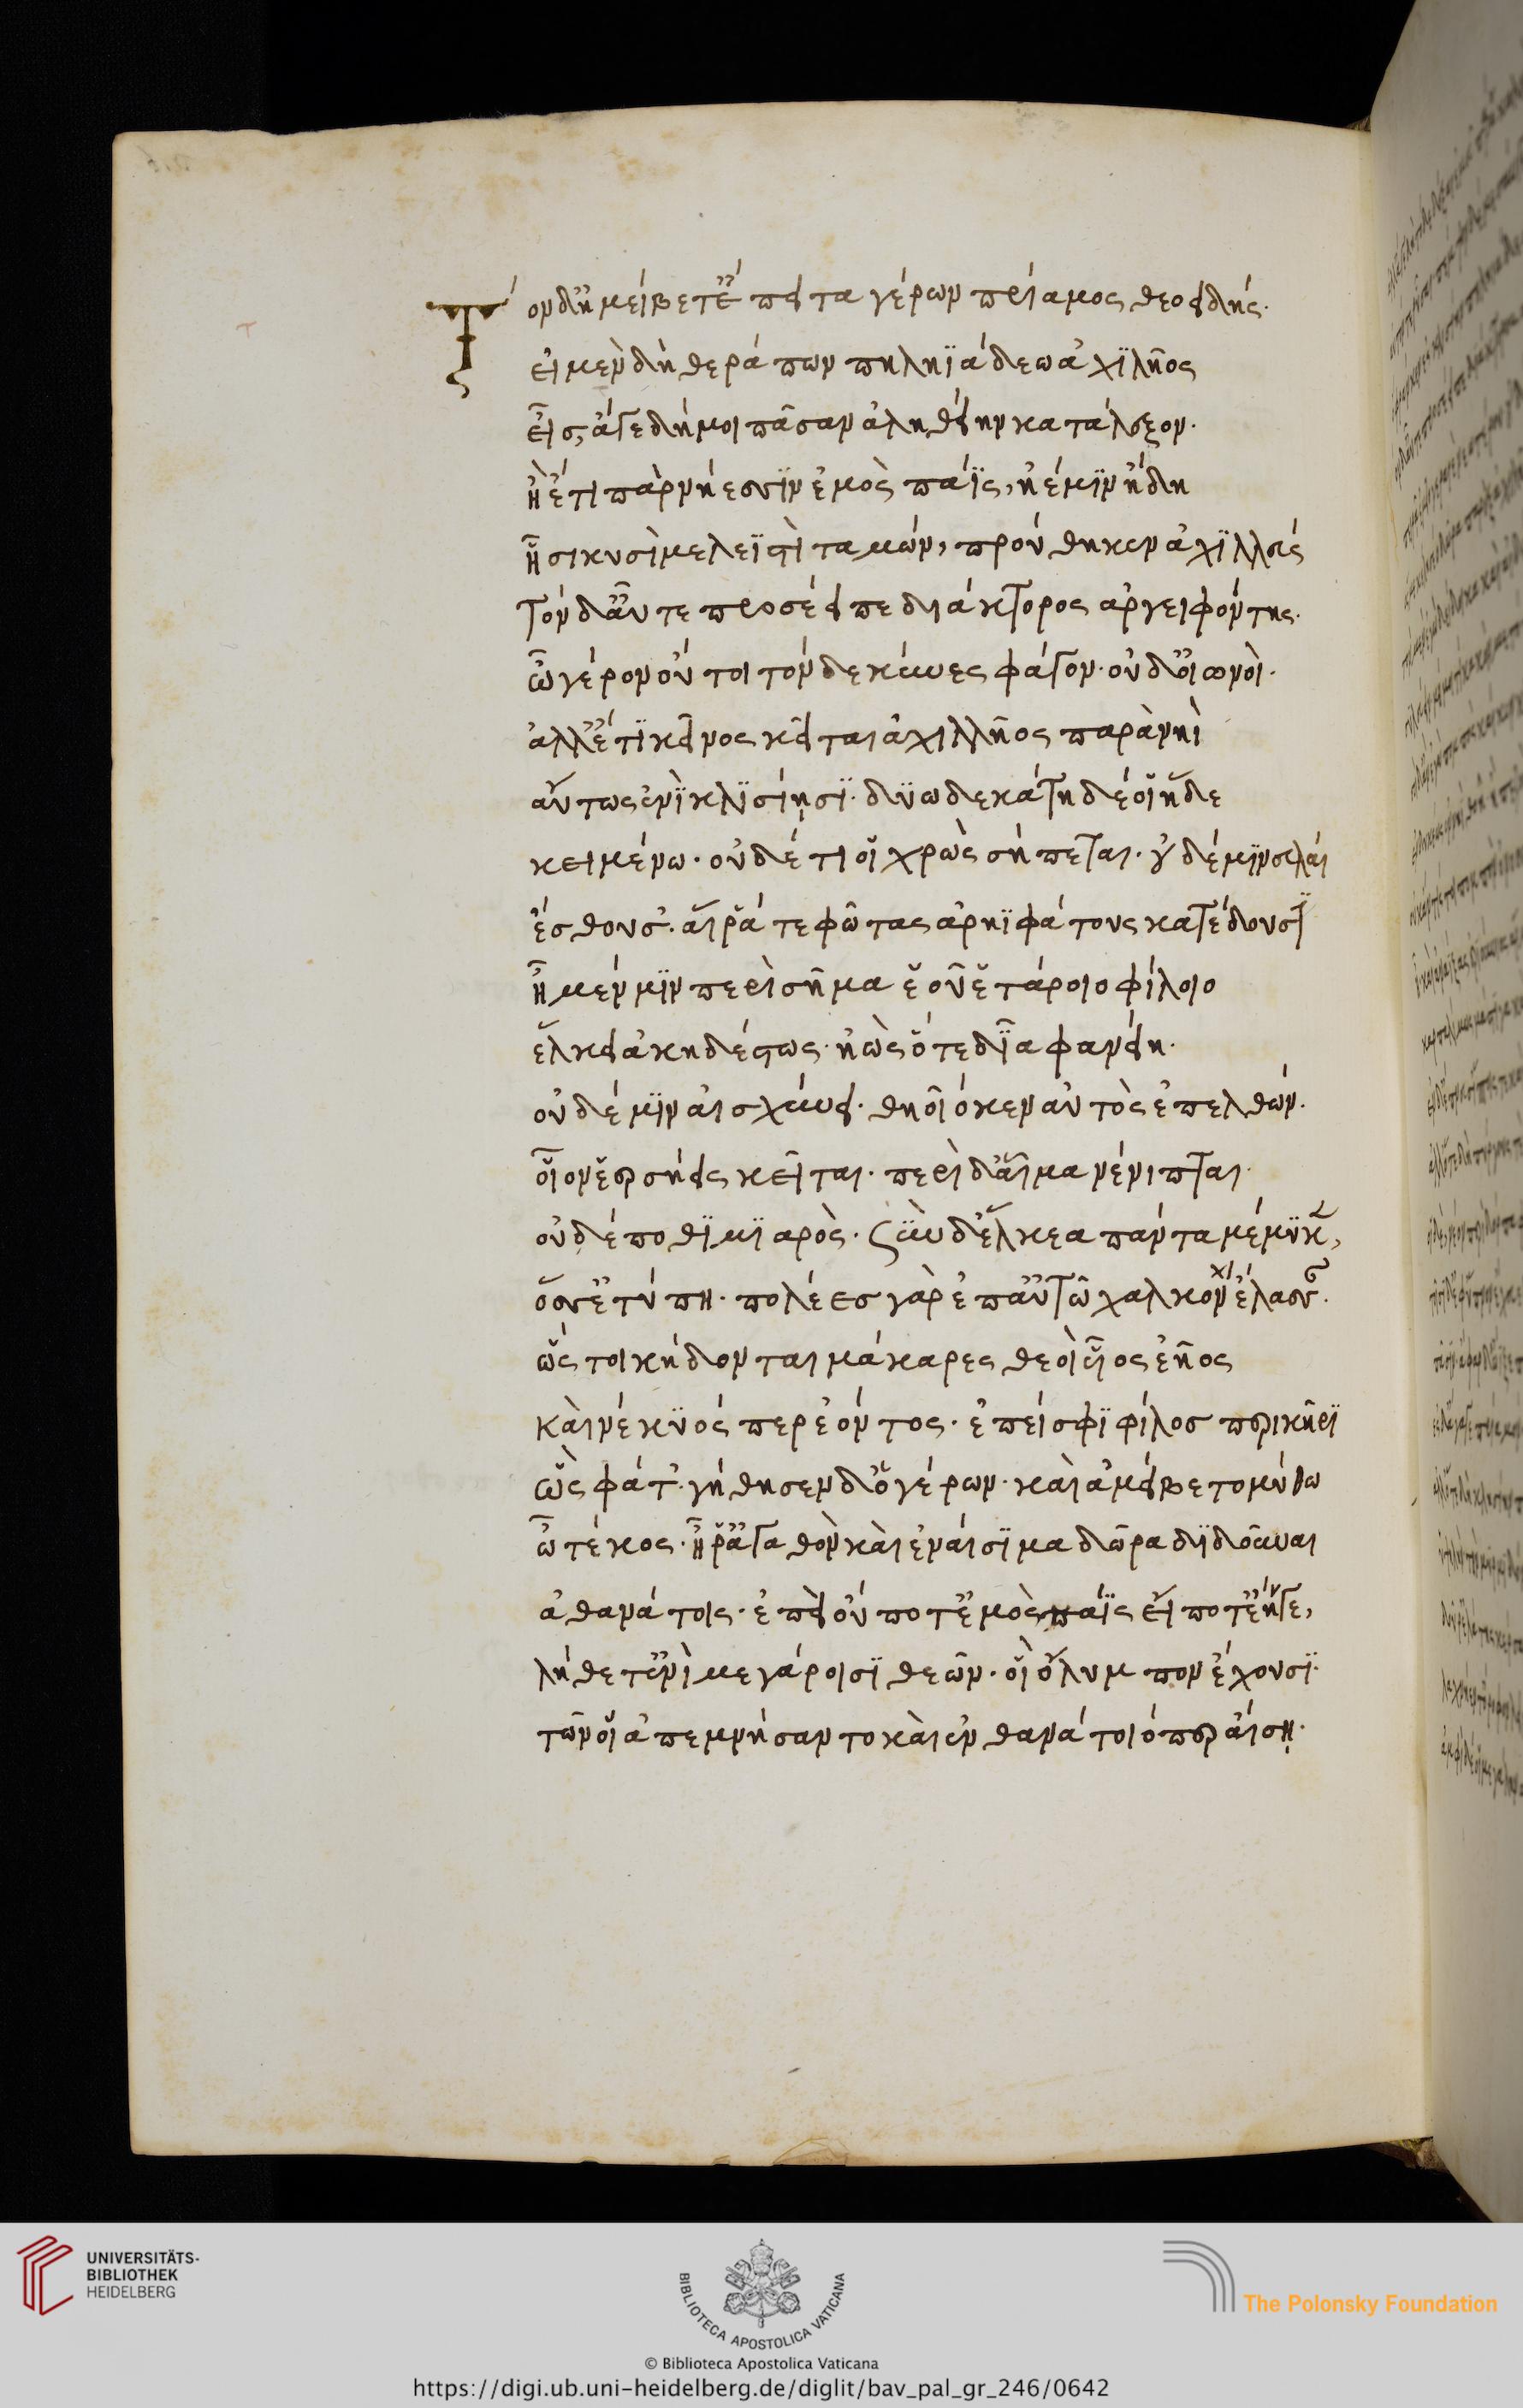 Τὸν δ' ἠμείβετ' ἔπειτα γέρων πρίαμος θεοειδής·
εἰ μὲν δὴ θεράπων πηληϊάδεω ἀχιλῆος
εἶς, ἄγε δή μοι πᾶσαν ἀληθείην κατάλεξον·
ἢ ἔτι πὰρ νήεσσιν ἐμὸς πάϊς, ἠέ μιν ἤδη
ᾗσι κυσὶ μελεϊστὶ ταμὼν, προύθηκεν ἀχιλλεύς
Τὸν δ' αὖτε προσέειπε διάκτορος ἀργειφόντης·
ὦ γέρον οὔ τοι τόνδε κύνες φάγον· οὐδ' οἰωνοὶ·
ἀλλ' ἔτι κεῖνος κεῖται ἀχιλλῆος παρὰ νηῒ
αὕτως ἐνὶ κλισίῃσι· δυωδεκάτη δέ οἱ ἥδε
κειμένω· οὐδέ τί οἱ χρὼς σήπεται· οὐδέ μιν εὐλαὶ
ἔσθουσ'· αἵ ῥά τε φῶτας ἀρηϊφάτους κατέδουσϊ
ἦ μέν μιν περὶ σῆμα ἑοῦ ἑτάροιο φίλοιο
ἕλκει ἀκηδέστως· ἠὼς ὅτε δῖα φανείη·
οὐδέ μιν αἰσχύνει· θηοῖό κεν αὐτὸς ἐπελθών·
οἷον ἐερσήεις κεῖται· περὶ δ' αἷμα νένιπται·
οὐδέ ποθι μιαρὸς· σὺν δ' ἕλκεα πάντα μέμυκε,
ὅσσ' ἐτύπη· πολέες γὰρ ἐπ' αὐτῶ χαλκὸν ἔλασσαν·
ὥς τοι κήδονται μάκαρες θεοὶ υἷος ἐῆος
καὶ νέκυός περ ἐόντος· ἐπεί σφι φίλος περὶ κῆρϊ
ὣς φάτ'· γήθησεν δ' ὁ γέρων· καὶ ἀμείβετο μύθω
ὦ τέκος· ἦ ῥ' ἀγαθὸν καὶ ἐναίσιμα δῶρα διδοῦναι
ἀθανάτοις· ἐπεὶ οὔποτ' ἐμὸς πάϊς εἴποτ' ἔην γε,
λήθετ' ἐνὶ μεγάροισϊ θεῶν· οἳ ὄλυμπον ἔχουσϊ·
τῶν οἱ ἀπεμνήσαντο καὶ ἐν θανάτοιό περ αἴσῃ·
UNIVERSITÄTS-
BIBLIOTHEK
HEIDELBERG
BIBLIOTECA APOSTOLICA VATICANA
The Polonsky Foundation
© Biblioteca Apostolica Vaticana
https://digi.ub.uni-heidelberg.de/diglit/bav_pal_gr_246/0642